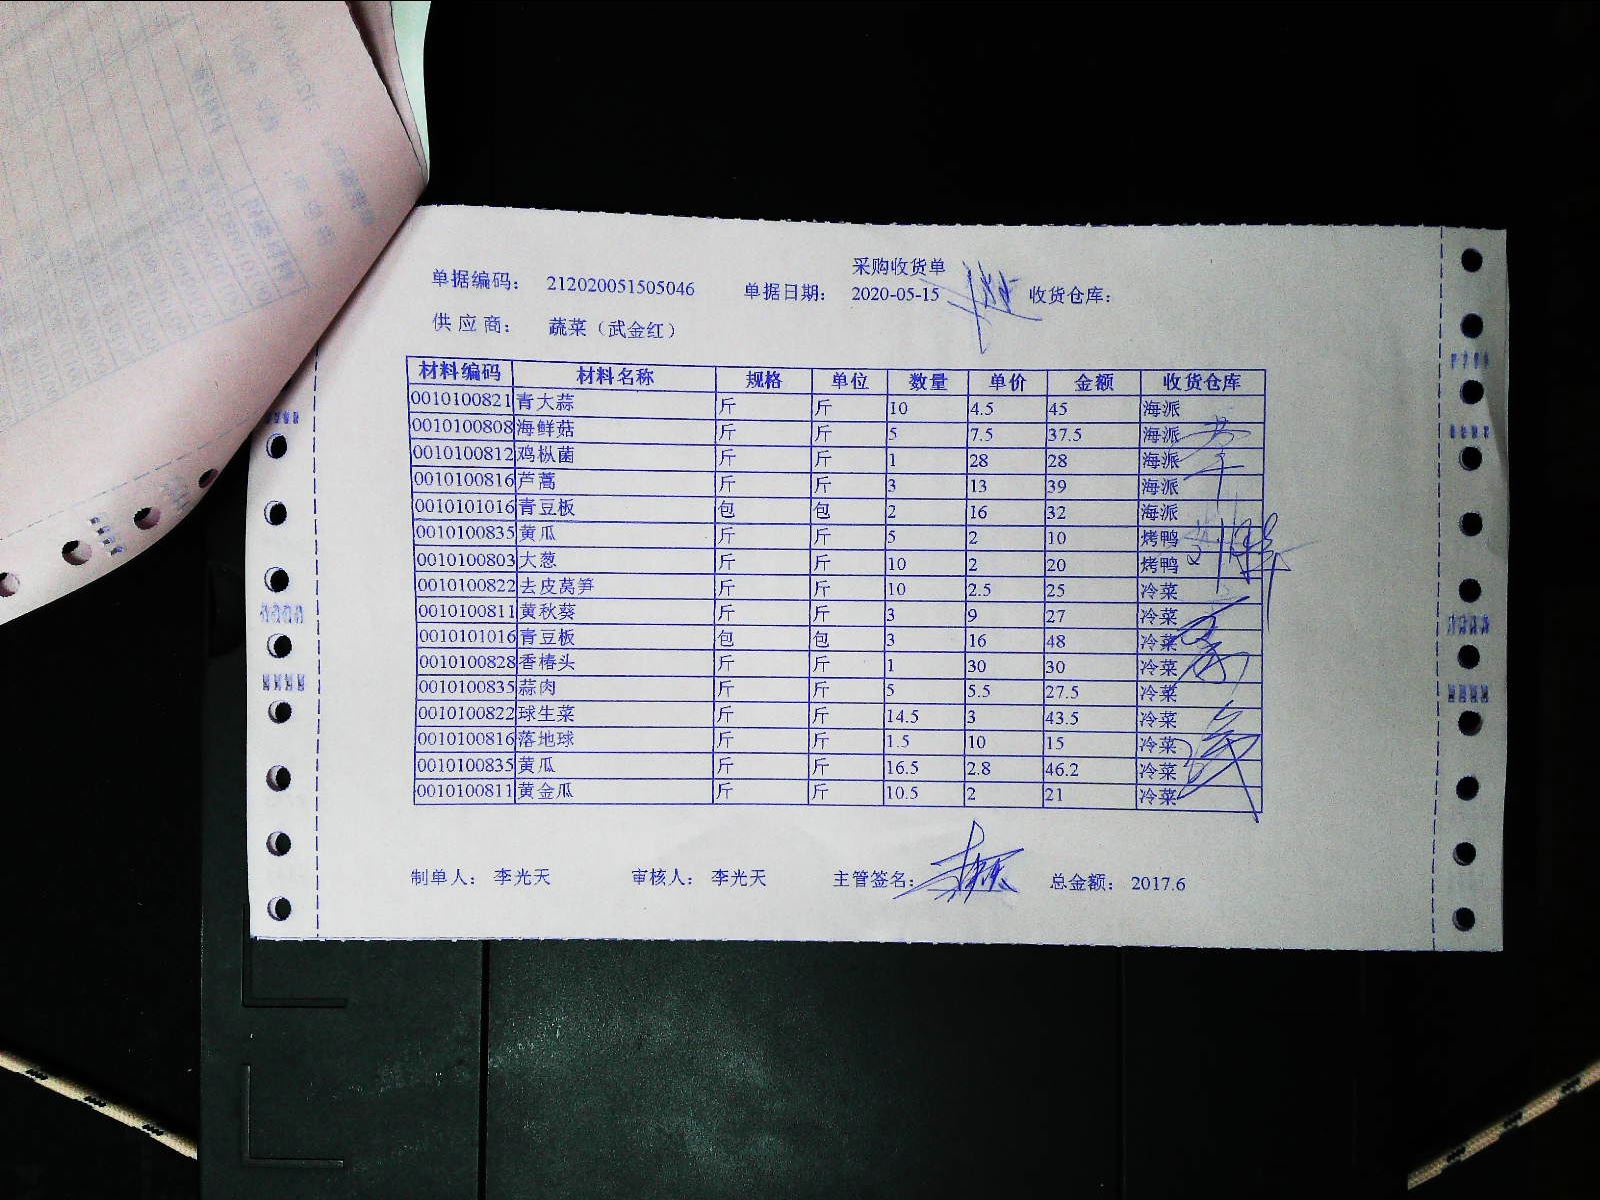 采购收货单
单据编码： 212020051505046 单据日期： 2020-05-15 收货仓库：
供应商： 蔬菜（武金红）
材料编码 材料名称 规格 单位 数量 单价 金额 收货仓库
0010100821 青大蒜 斤 斤 10 4.5 45 海派
0010100808 海鲜菇 斤 斤 5 7.5 37.5 海派
0010100812 鸡枞菌 斤 斤 1 28 28 海派
0010100816 芦蒿 斤 斤 3 13 39 海派
0010101016 青豆板 包 包 2 16 32 海派
0010100835 黄瓜 斤 斤 5 2 10 烤鸭
0010100803 大葱 斤 斤 10 2 20 烤鸭
0010100822 去皮莴笋 斤 斤 10 2.5 25 冷菜
0010100811 黄秋葵 斤 斤 3 9 27 冷菜
0010101016 青豆板 包 包 3 16 48 冷菜
0010100828 香椿头 斤 斤 1 30 30 冷菜
0010100835 蒜肉 斤 斤 5 5.5 27.5 冷菜
0010100822 球生菜 斤 斤 14.5 3 43.5 冷菜
0010100816 落地球 斤 斤 1.5 10 15 冷菜
0010100835 黄瓜 斤 斤 16.5 2.8 46.2 冷菜
0010100811 黄金瓜 斤 斤 10.5 2 21 冷菜
制单人： 李光天 审核人： 李光天 主管签名： 总金额： 2017.6